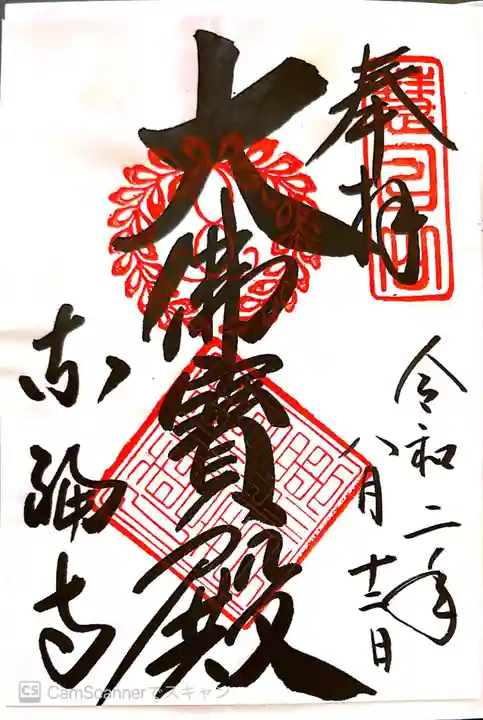 奉拝
慧日山
大佛寶殿
令和二年
八月十二日
東福寺
CS CamScannerでスキャン